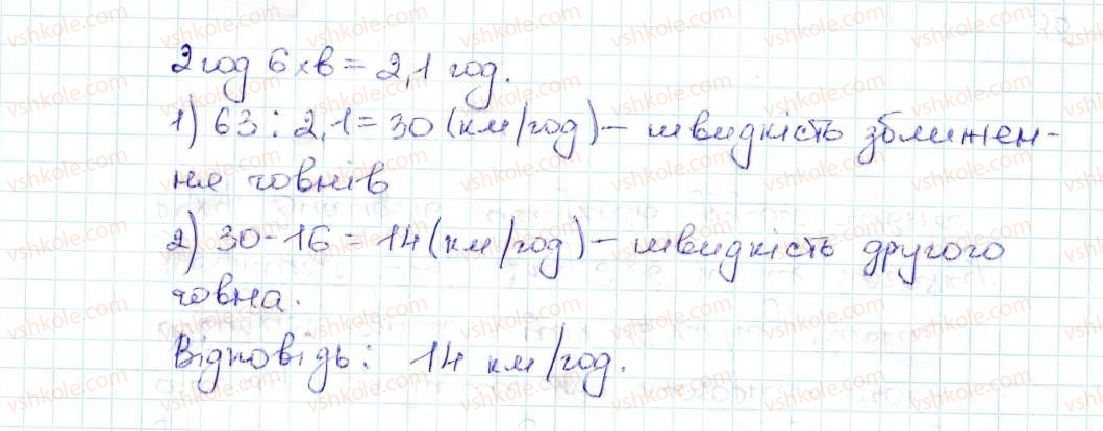 2 год 6 хв = 2,1 год.
1) 63 : 2,1 = 30 (км/год) – швидкість зближен-
ня човнів
2) 30 - 16 = 14 (км/год) – швидкість другого
човна.
Відповідь: 14 км/год.
vshkole.com